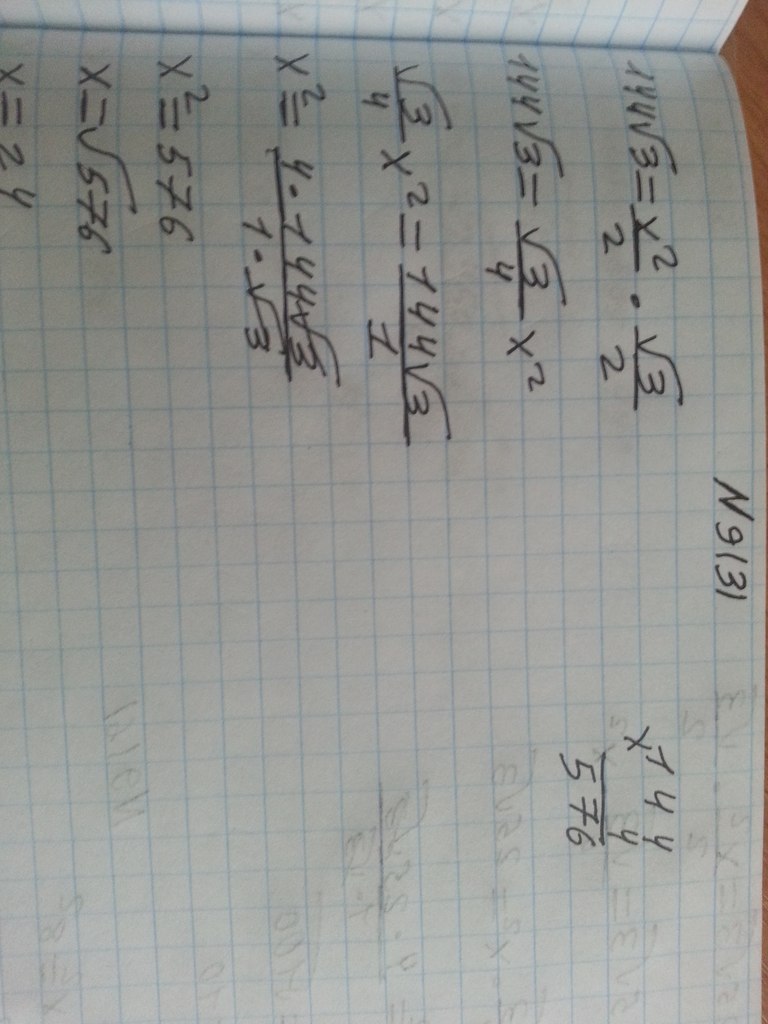 N 9(3)
144√3 = x²/2 · √3/2
144√3 = √3/4 x²
√3/4 x² = 144√3/1
x² = 4·144√3/1·√3
x² = 576
x = √576
x = 24
x 144
4
576